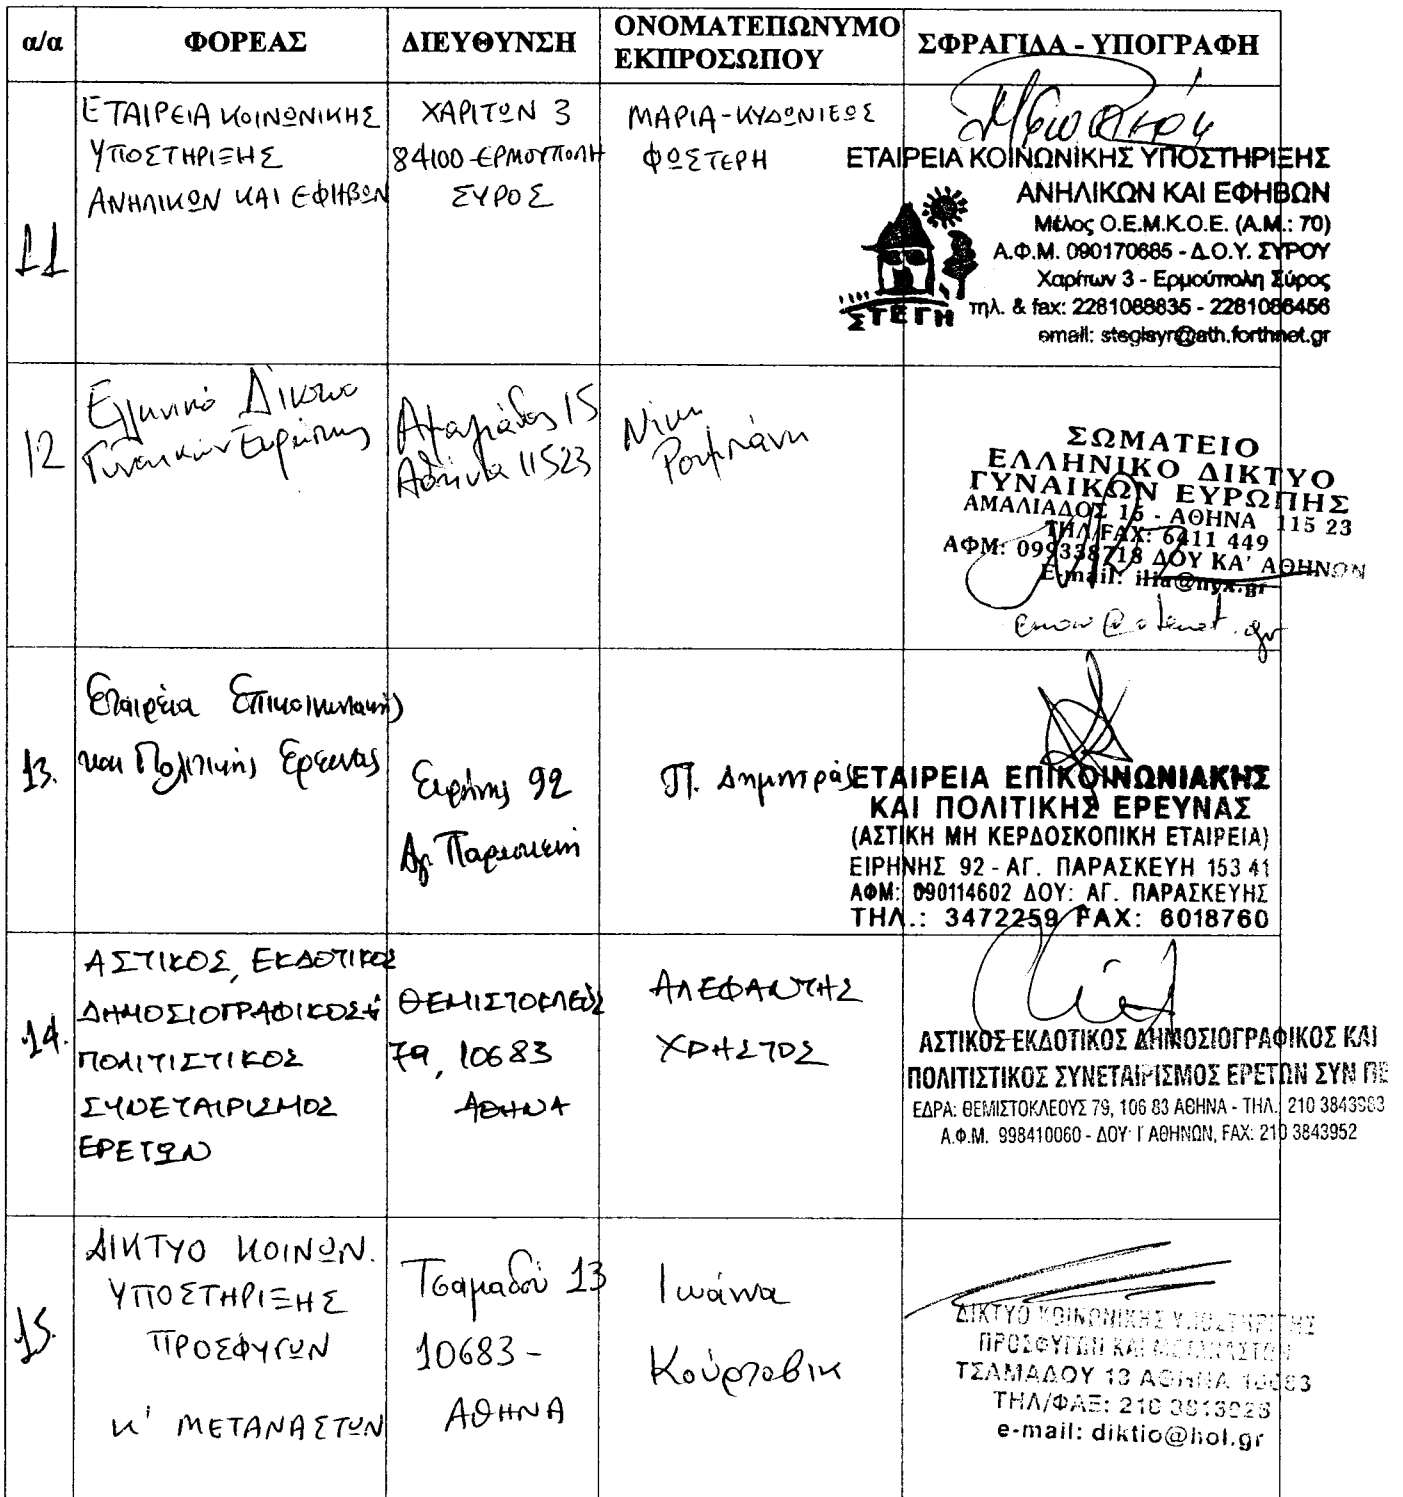 α/α ΦΟΡΕΑΣ ΔΙΕΥΘΥΝΣΗ ΟΝΟΜΑΤΕΠΩΝΥΜΟ ΕΚΠΡΟΣΩΠΟΥ ΣΦΡΑΓΙΔΑ - ΥΠΟΓΡΑΦΗ
11
ΕΤΑΙΡΕΙΑ ΚΟΙΝΩΝΙΚΗΣ
ΥΠΟΣΤΗΡΙΞΗΣ
ΑΝΗΛΙΚΩΝ ΚΑΙ ΕΦΗΒΩΝ
ΧΑΡΙΤΩΝ 3
84100-ΕΡΜΟΥΠΟΛΗ
ΣΥΡΟΣ
ΜΑΡΙΑ-ΚΥΔΩΝΙΕΩΣ
ΦΩΣΤΕΡΗ
ΕΤΑΙΡΕΙΑ ΚΟΙΝΩΝΙΚΗΣ ΥΠΟΣΤΗΡΙΞΗΣ
ΑΝΗΛΙΚΩΝ ΚΑΙ ΕΦΗΒΩΝ
Μέλος Ο.Ε.Μ.Κ.Ο.Ε. (Α.Μ.: 70)
Α.Φ.Μ. 090170685 - Δ.Ο.Υ. ΣΥΡΟΥ
Χαρίτων 3 - Ερμούπολη Σύρος
τηλ. & fax: 2281088835 - 2281086456
email: stegisyr@ath.forthnet.gr
ΣΤΕΓΗ
12
Ελληνικό Δίκτυο
Γυναικών Ευρώπης
Αμαλιάδος 15
Αθήνα 11523
Νίκη
Ρουμπάνη
ΣΩΜΑΤΕΙΟ
ΕΛΛΗΝΙΚΟ ΔΙΚΤΥΟ
ΓΥΝΑΙΚΩΝ ΕΥΡΩΠΗΣ
ΑΜΑΛΙΑΔΟΣ 15 - ΑΘΗΝΑ 115 23
ΤΗΛ/FAX: 6411 449
ΑΦΜ: 099338718 ΔΟΥ ΚΑ' ΑΘΗΝΩΝ
E-mail: ilia@nyx.gr
13.
Εταιρεία Επικοινωνιακής
και Πολιτικής Έρευνας
Ειρήνης 92
Αγ. Παρασκευή
Π. Δημητράς
ΕΤΑΙΡΕΙΑ ΕΠΙΚΟΙΝΩΝΙΑΚΗΣ
ΚΑΙ ΠΟΛΙΤΙΚΗΣ ΕΡΕΥΝΑΣ
(ΑΣΤΙΚΗ ΜΗ ΚΕΡΔΟΣΚΟΠΙΚΗ ΕΤΑΙΡΕΙΑ)
ΕΙΡΗΝΗΣ 92 - ΑΓ. ΠΑΡΑΣΚΕΥΗ 153 41
ΑΦΜ: 090114602 ΔΟΥ: ΑΓ. ΠΑΡΑΣΚΕΥΗΣ
ΤΗΛ.: 3472259 FAX: 6018760
14.
ΑΣΤΙΚΟΣ, ΕΚΔΟΤΙΚΟΣ
ΔΗΜΟΣΙΟΓΡΑΦΙΚΟΣ &
ΠΟΛΙΤΙΣΤΙΚΟΣ
ΣΥΝΕΤΑΙΡΙΣΜΟΣ
ΕΡΕΤΩΝ
ΘΕΜΙΣΤΟΚΛΕΟΥΣ
79, 10683
ΑΘΗΝΑ
ΑΛΕΦΑΝΤΗΣ
ΧΡΗΣΤΟΣ
ΑΣΤΙΚΟΣ ΕΚΔΟΤΙΚΟΣ ΔΗΜΟΣΙΟΓΡΑΦΙΚΟΣ ΚΑΙ
ΠΟΛΙΤΙΣΤΙΚΟΣ ΣΥΝΕΤΑΙΡΙΣΜΟΣ ΕΡΕΤΩΝ ΣΥΝ ΠΕ
ΕΔΡΑ: ΘΕΜΙΣΤΟΚΛΕΟΥΣ 79, 106 83 ΑΘΗΝΑ - ΤΗΛ. 210
Α.Φ.Μ. 998410060 - ΔΟΥ: Γ ΑΘΗΝΩΝ, FAX: 210 3843952
15.
ΔΙΚΤΥΟ ΚΟΙΝΩΝ.
ΥΠΟΣΤΗΡΙΞΗΣ
ΠΡΟΣΦΥΓΩΝ
κ' ΜΕΤΑΝΑΣΤΩΝ
Τσαμαδού 13
10683 -
ΑΘΗΝΑ
Ιωάννα
Κούρτοβικ
ΔΙΚΤΥΟ ΚΟΙΝΩΝΙΚΗΣ ΥΠΟΣΤΗΡΙΞΗΣ
ΠΡΟΣΦΥΓΩΝ ΚΑΙ ΜΕΤΑΝΑΣΤΩΝ
ΤΣΑΜΑΔΟΥ 13 ΑΘΗΝΑ 10683
ΤΗΛ/ΦΑΞ: 210
e-mail: diktio@hol.gr